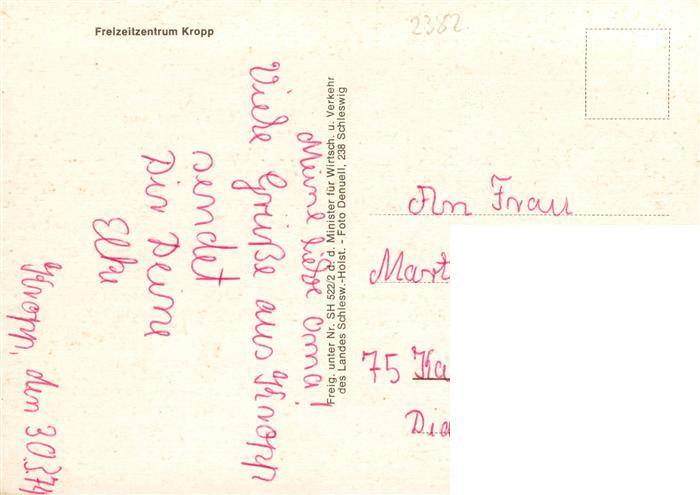 Freizeitzentrum Kropp
2382
Meine liebe Oma!
Viele Grüße aus Kropp
sendet
Dir Deine
Elke
Kropp, den 30.3.74
Freig. unter Nr. SH 522/2 d. d. Minister für Wirtsch. u. Verkehr
des Landes Schlesw.-Holst. - Foto Denuell, 238 Schleswig
An Frau
Mart
75 Ka
Dia